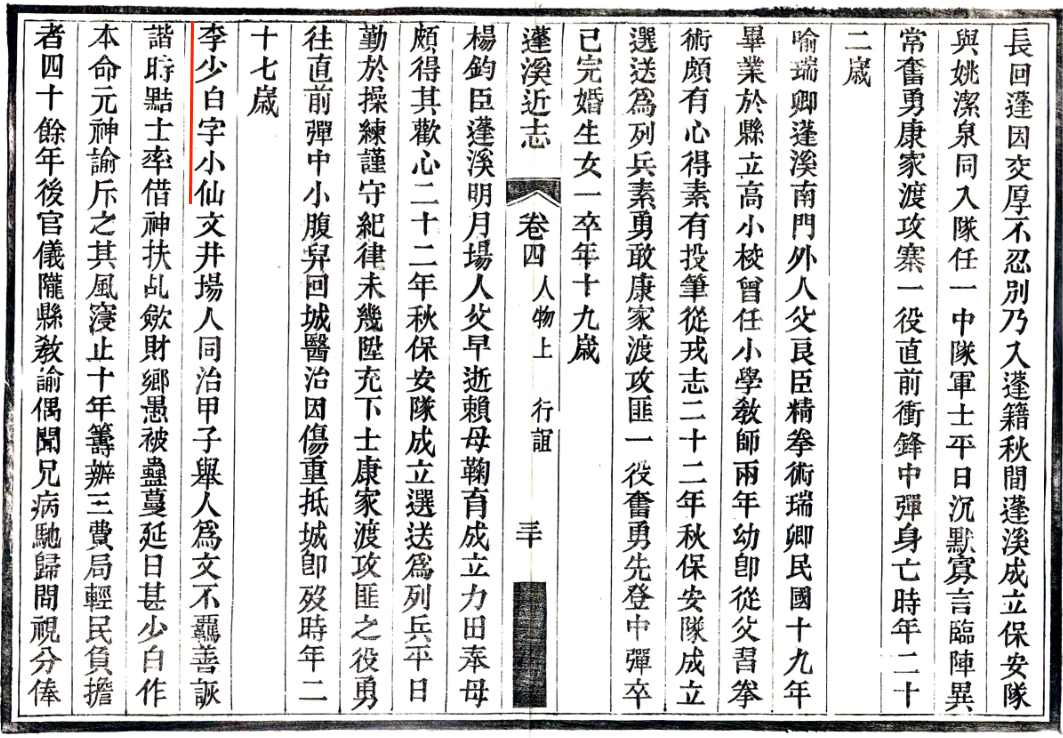 長回蓬因交厚不忍別乃入蓬籍秋間蓬溪成立保安隊
與姚潔泉同入隊任一中隊軍士平日沉默寡言臨陣異
常奮勇康家渡攻寨一役直前衝鋒中彈身亡時年二十
二歲
喻瑞卿蓬溪南門外人父良臣精拳術瑞卿民國十九年
畢業於縣立高小校曾任小學教師兩年幼卽從父習拳
術頗有心得素有投筆從戎志二十二年秋保安隊成立
選送爲列兵素勇敢康家渡攻匪一役奮勇先登中彈卒
已完婚生女一卒年十九歲
蓬溪近志 卷四 人物上 行誼 三十
楊鈞臣蓬溪明月場人父早逝賴母鞠育成立力田奉母
頗得其歡心二十二年秋保安隊成立選送爲列兵平日
勤於操練謹守紀律未幾陞充下士康家渡攻匪之役勇
往直前彈中小腹舁回城醫治因傷重抵城卽歿時年二
十七歲
李少白字小仙文井場人同治甲子舉人爲文不羈善詼
諧時黠士率借神扶乩歛財鄉愚被蠱蔓延日甚少白作
本命元神諭斥之其風寖止十年籌辦三費局輕民負擔
者四十餘年後官儀隴縣教諭偶聞兄病馳歸問視分俸